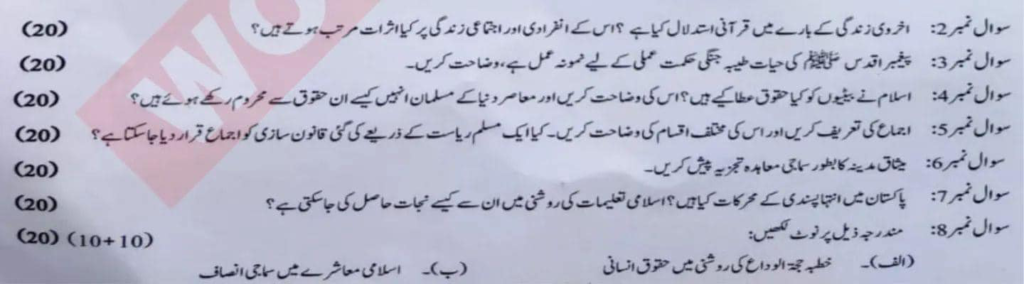 سوال نمبر2: اخروی زندگی کے بارے میں قرآنی استدلال کیا ہے ؟ اس کے انفرادی اور اجتماعی زندگی پر کیا اثرات مرتب ہوتے ہیں؟ (20)
سوال نمبر3: پیغمبر اقدس ﷺ کی حیات طیبہ جنگی حکمت عملی کے لیے نمونہ عمل ہے، وضاحت کریں۔ (20)
سوال نمبر4: اسلام نے بیٹیوں کو کیا حقوق عطا کیے ہیں؟ اس کی وضاحت کریں اور معاصر دنیا کے مسلمان انہیں کیسے ان حقوق سے محروم رکھے ہوئے ہیں؟ (20)
سوال نمبر5: اجماع کی تعریف کریں اور اس کی مختلف اقسام کی وضاحت کریں۔ کیا ایک مسلم ریاست کے ذریعے کی گئی قانون سازی کو اجماع قرار دیا جا سکتا ہے؟ (20)
سوال نمبر6: میثاق مدینہ کا بطور سماجی معاہدہ تجزیہ پیش کریں۔ (20)
سوال نمبر7: پاکستان میں انتہا پسندی کے محرکات کیا ہیں؟ اسلامی تعلیمات کی روشنی میں ان سے کیسے نجات حاصل کی جا سکتی ہے؟ (20)
سوال نمبر8: مندرجہ ذیل پر نوٹ لکھیں: (10+10) (20)
(الف)۔ خطبہ حجۃ الوداع کی روشنی میں حقوق انسانی (ب)۔ اسلامی معاشرے میں سماجی انصاف
WO